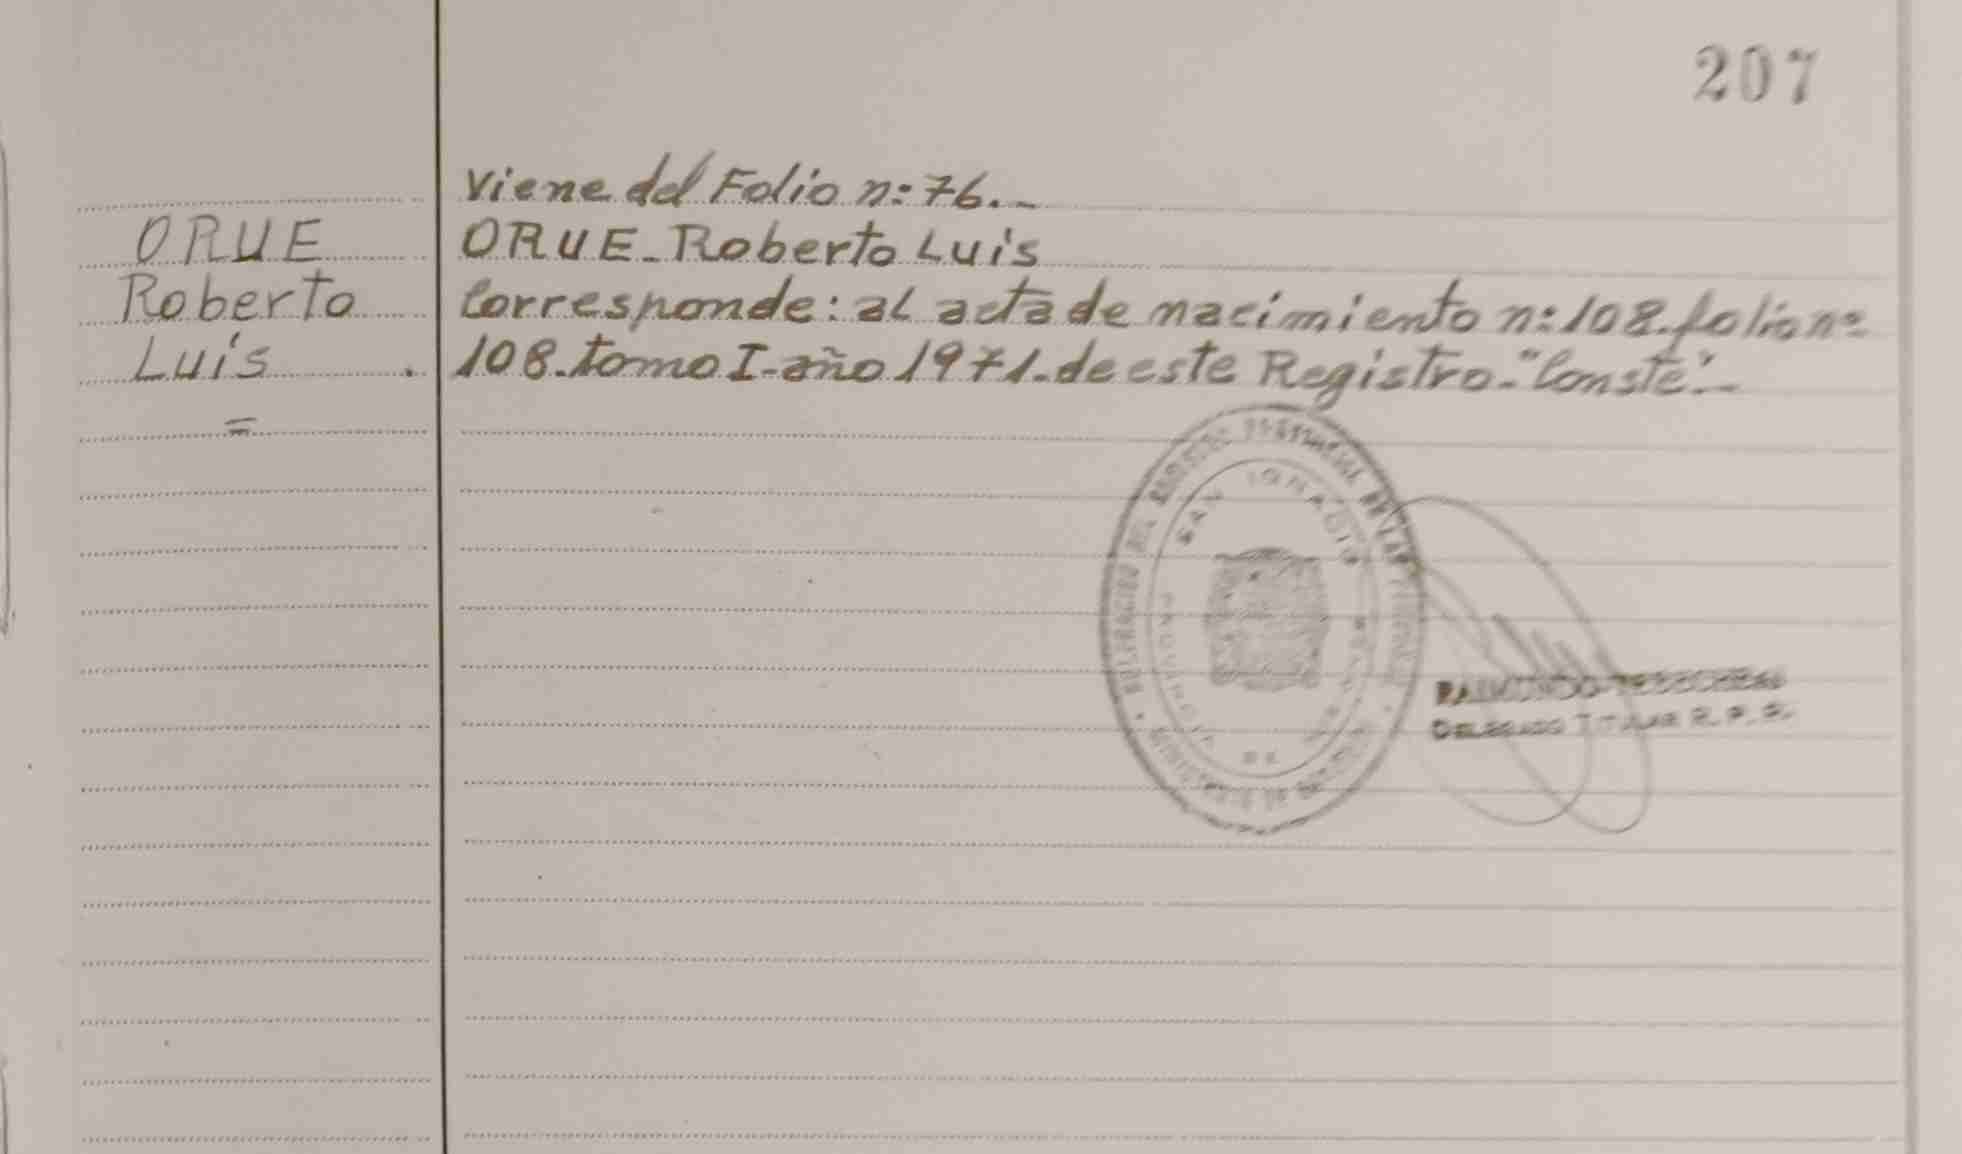 207
Viene del Folio n: 76.-
ORUE
Roberto
Luis
=
ORUE - Roberto Luis
Corresponde: al acta de nacimiento n: 108. folio nº
108. tomo I - año 1971. de este Registro. "Conste".-
SAN IGNACIO
RAIMUNDO
DELEGADO TITULAR R. P. P.